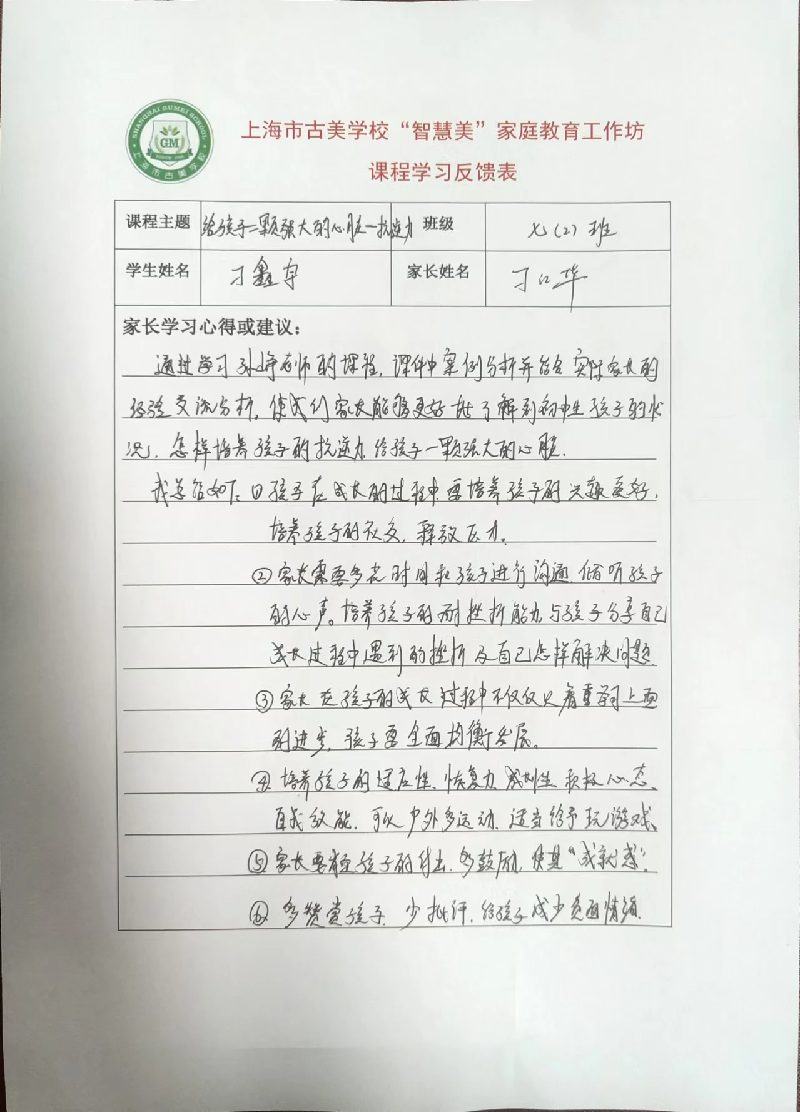 SHANGHAI GUMEI SCHOOL
GM
上海市古美学校
上海市古美学校“智慧美”家庭教育工作坊
课程学习反馈表
课程主题 给孩子一颗强大的心脏—抗逆力 班级 七(2)班
学生姓名 刁鑫宇 家长姓名 刁 华
家长学习心得或建议:
通过学习孙峥老师的课程,课件中案例分析并结合实际家长的
经验交流分析,使我们家长能够更好 了解到初中生孩子的状
况,怎样培养孩子的抗逆力,给孩子一颗强大的心脏.
我总结如下:①孩子在成长的过程中要培养孩子的兴趣爱好,
培养孩子的社交,释放压力。
②家长需要多花时间和孩子进行沟通,倾听孩子
的心声。培养孩子的耐挫折能力,与孩子分享自己
成长过程中遇到的挫折及自己怎样解决问题
③家长在孩子的成长过程中不仅仅 着重学习上面
的进步,孩子要全面均衡发展。
④培养孩子的适应性、恢复力、 积极心态、
自我效能,可以户外多运动,适当给予玩游戏、
⑤家长要 孩子的 ,多鼓励,使其“成就感”.
⑥多赞赏孩子,少批评,给孩子减少负面情绪.